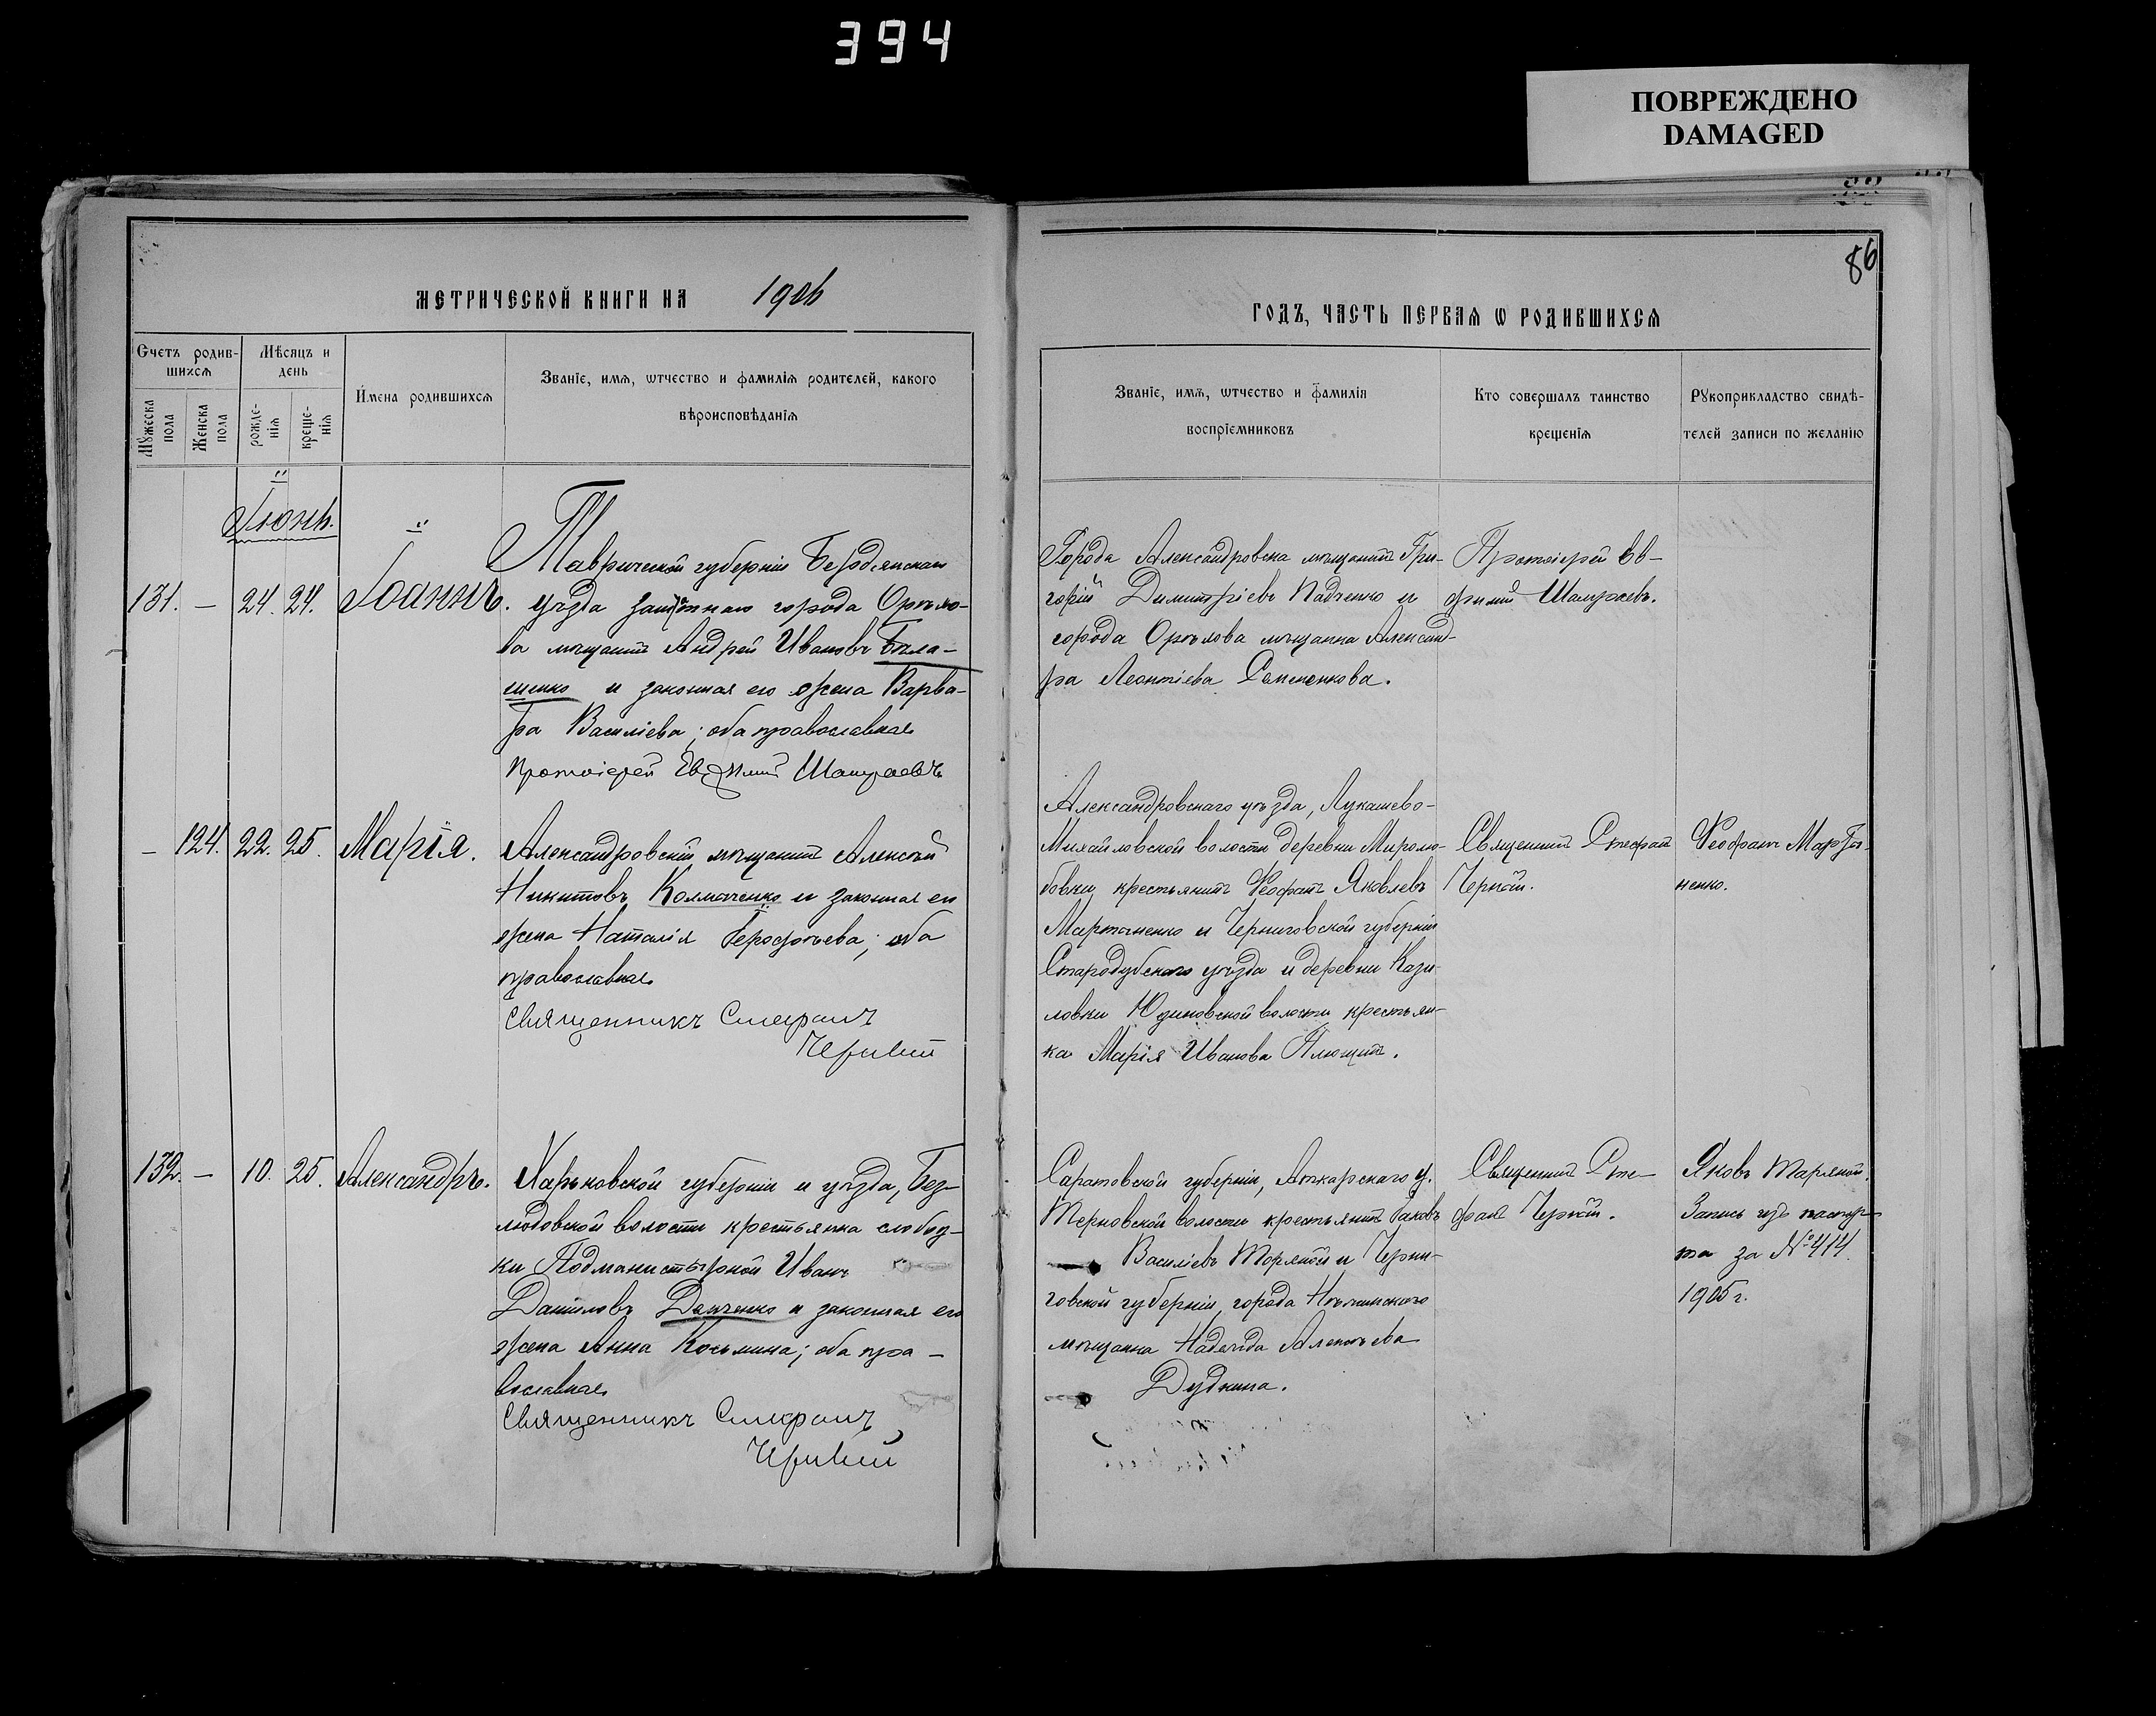 394
ПОВРЕЖДЕНО
DAMAGED
86
МЕТРИЧЕСКОЙ КНИГИ НА 1906
ГОДЪ, ЧАСТЬ ПЕРВАЯ Ѡ РОДИВШИХСЯ
Счетъ родив-
шихся
Мужеска пола
Женска пола
Мѣсяцъ и
день
рожде-
нія
креще-
нія
Имена родившихся
Званіе, имя, ѡтчество и фамилія родителей, какого
вѣроисповѣданія
Званіе, имя, ѡтчество и фамилія
воспріемниковъ
Кто совершалъ таинство
крещенія
Рукоприкладство свидѣ-
телей записи по желанію
Іюнь.
131. — 24. 24. Іоаннъ.
Таврической губерніи Бердянскаго
уѣзда заштатнаго города Орѣхо-
ва мѣщанинъ Андрей Ивановъ Бала-
шенко и законная его жена Варва-
ра Василіева; оба православные
Протоіерей Евѳимій Шамраевъ
Города Александровска мѣщанинъ Гри-
горій Димитріевъ Падченко и
города Орѣхова мѣщанка Александ-
ра Леонтіева Семененкова.
Протоіерей Ев-
фимій Шамраевъ.
— 124. 22. 25. Марія.
Александровскій мѣщанинъ Алексѣй
Никитовъ Колмоченко и законная его
жена Наталія Терофѣева; оба
православные
Священникъ Стефанъ
Чернай
Александровскаго уѣзда, Лукашево-
Михайловской волости деревни Миролю-
бовки крестьянинъ Ѳеофанъ Яковлевъ
Мартыненко и Черниговской губерніи
Стародубскаго уѣзда и деревни Кази-
ловки Юдиновской волости крестьян-
ка Марія Иванова Плющикъ.
Священникъ Стефанъ
Чернай.
Ѳеофанъ Марты-
ненко.
132. — 10. 25. Александръ.
Харьковской губерніи и уѣзда, Без-
людовской волости крестьянка слобод-
ки Подманистырной Иванъ
Даниловъ Демченко и законная его
жена Анна Косьмина; оба пра-
вославные
Священникъ Стефанъ
Чернай
Саратовской губерніи, Аткарскаго у.
Терновской волости крестьянинъ Іаковъ
Василіевъ Торяной и Черни-
говской губерніи, города Нѣжинскаго
мѣщанка Надежда Алексѣева
Дудкина.
Священникъ Сте-
фанъ Чернай.
Яковъ Таряной.
Запись изъ паспор-
та за № 414
1905 г.